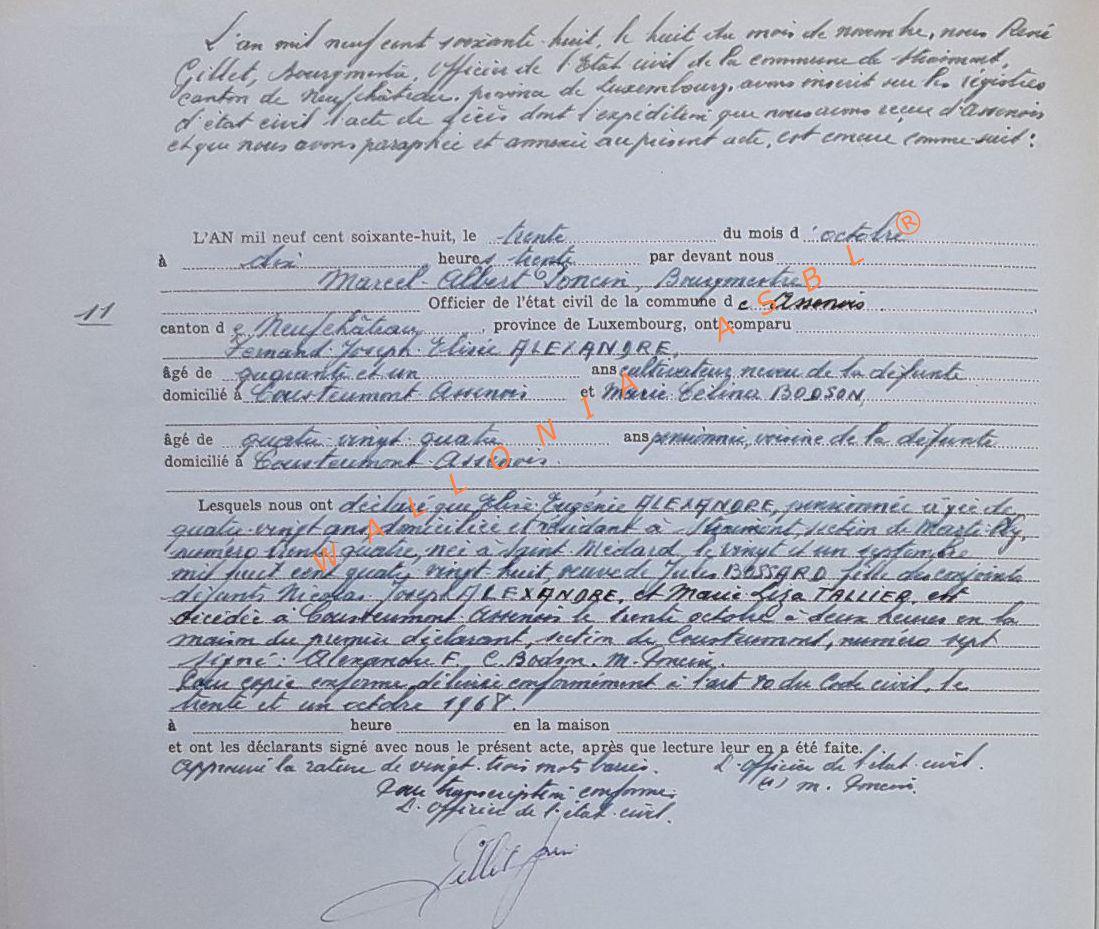 L'an mil neuf cent soixante-huit, le huit du mois de novembre, nous René
Gillet, Bourgmestre, Officier de l'Etat civil de la commune de Straimont,
canton de Neufchâteau, province de Luxembourg, avons inscrit sur les registres
d'état civil l'acte de décès dont l'expédition que nous avons reçue d'Assenois
et que nous avons paraphée et annexée au présent acte, est conçue comme suit:
L'AN mil neuf cent soixante-huit, le trente du mois d'octobre
à dix heures trente par devant nous
Marcel-Albert Poncin, Bourgmestre
Officier de l'état civil de la commune de Assenois
11
canton de Neufchâteau, province de Luxembourg, ont comparu
Fernand-Joseph-Elisée ALEXANDRE,
âgé de quarante et un ans cultivateur, neveu de la défunte
domicilié à Cousteumont-Assenois et Marie Célina BODSON,
âgé de quatre-vingt-quatre ans pensionnée, voisine de la défunte
domicilié à Cousteumont-Assenois.
Lesquels nous ont déclaré que Elise-Eugénie ALEXANDRE, pensionnée âgée de
quatre-vingt ans, domiciliée et résidant à Straimont, section de
numéro trente quatre, née à Saint-Médard, le vingt et un septembre
mil huit cent quatre vingt huit, veuve de Jules BOSSARD fille des conjoints
défunts Nicolas-Joseph ALEXANDRE, et Marie Liza TALLIER, est
décédée à Cousteumont-Assenois le trente octobre à deux heures en la
maison du premier déclarant, section de Cousteumont, numéro sept
Signé: Alexandre F. C. Bodson. M. Poncin.
Pour copie conforme, délivrée conformément à l'art 80 du Code civil, le
trente et un octobre 1968.
à heure en la maison
et ont les déclarants signé avec nous le présent acte, après que lecture leur en a été faite.
Approuvé la rature de vingt-trois mots barrés. L'Officier de l'état civil.
(s) M. Poncin.
Pour transcription conforme,
L'Officier de l'état civil.
Gillet René
WALLONIA ASBL ®